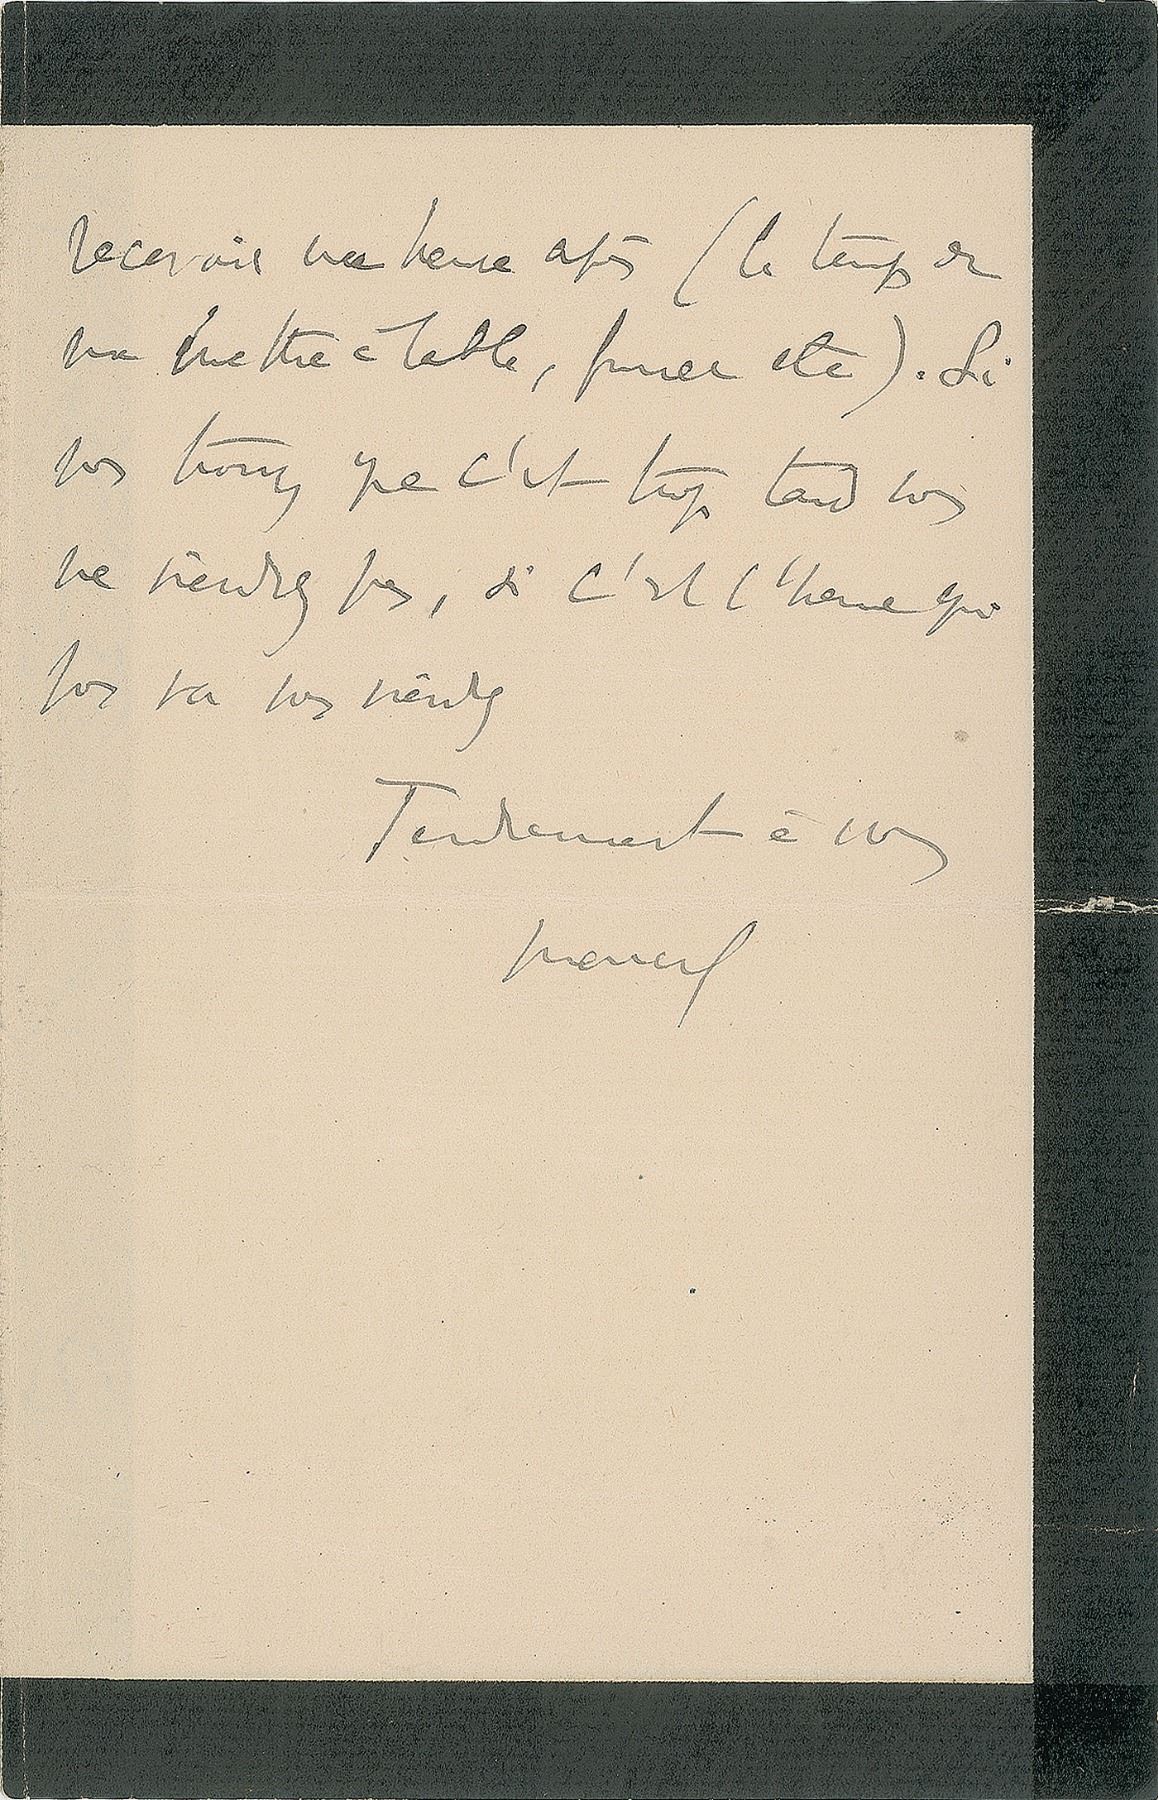 recevoir une heure après (le temps de
me mettre à table, fumer etc). Si
vous trouvez que c'est trop tard vous
ne viendrez pas, si c'est l'heure qui
vous va vous viendrez
Tendrement à vous
Marcel